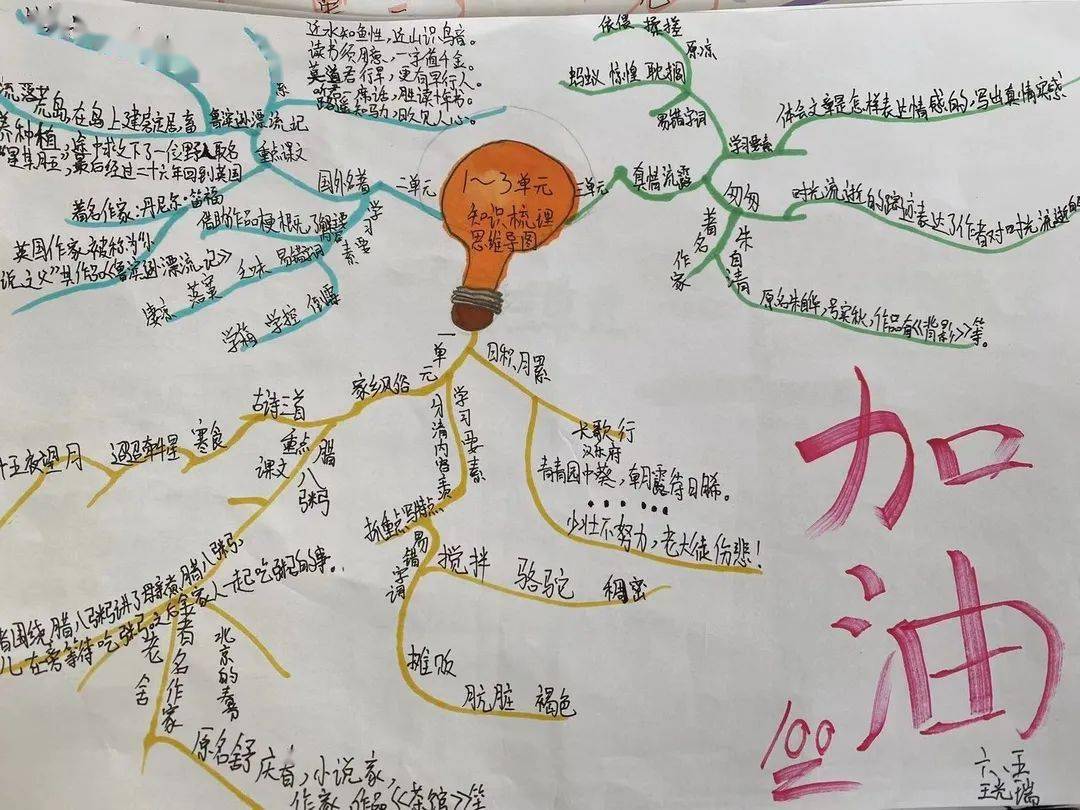 1～3单元
知识梳理
思维导图
二单元
国外名著
重点课文
鲁滨逊漂流记
荒岛,在岛上建房定居,畜
养种植,途中救下了一位野人取名
"星期五",最后经过二十六年回到英国
著名作家:丹尼尔·笛福
英国作家,被称为"小
说之父"其作品《鲁滨逊漂流记》
学习要素
借助作品梗概了解
易错字词
凄凉
学校
近水知鱼性,近山识鸟音。
读书须用意,一字值千金。
莫道君行早,更有早行人。
听君一席话,胜读十年书。
路遥知马力,日久见人心。
三单元
真情流露
学习要素
体会文章是怎样表达情感的,写出真情实感
易错字词
依偎 揉搓
蚂蚁 惊惶 耽搁
匆匆
时光流逝的踪迹表达了作者对时光流逝的
朱自清
著名作家
原名朱自华,号实秋,作品有《背影》等。
一单元
家乡风俗
古诗三首
寒食
迢迢牵牛星
十五夜望月
重点课文
腊八粥
者围绕腊八粥讲了母亲煮腊八粥,
儿在旁等待吃粥及全家人一起吃粥的事。
老舍
著名作家
北京的春节
原名舒庆春,小说家,
作家,作品《茶馆》等
学习要素
分清内容主次
抓重点写特点
易错字词
搅拌 骆驼 稠密
摊贩
肮脏 褐色
日积月累
长歌行
汉乐府
青青园中葵,朝露待日晞。
......
少壮不努力,老大徒伤悲!
加油
100
六、五